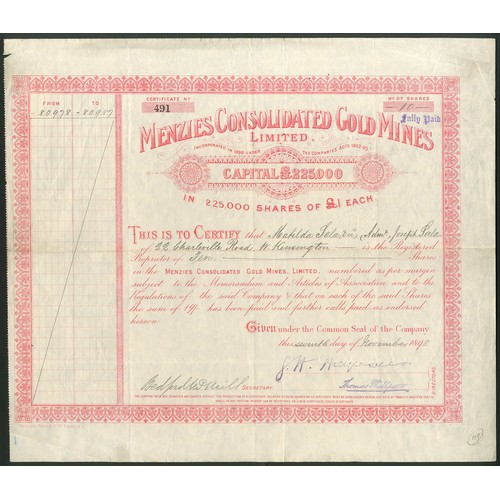 FROM TO
80978 - 80987
CERTIFICATE Nº
491
Nº OF SHARES
10
Fully Paid
MENZIES CONSOLIDATED GOLD MINES
LIMITED.
INCORPORATED IN UNDER THE COMPANIES ACTS
CAPITAL £225,000
IN 225,000 SHARES OF £1 EACH.
THIS IS TO CERTIFY that Matilda Joseph
of 22 Charleville Road, W. Kensington is the Registered
Proprietor of Ten Shares
in the MENZIES CONSOLIDATED GOLD MINES, LIMITED, numbered as per margin
subject to the Memorandum and Articles of Association and to the
Regulations of the said Company & that on each of the said Shares
the sum of 19/- has been paid and further calls paid as endorsed
hereon
Given under the Common Seal of the Company
this seventh day of November 1898
SECRETARY
Thomas